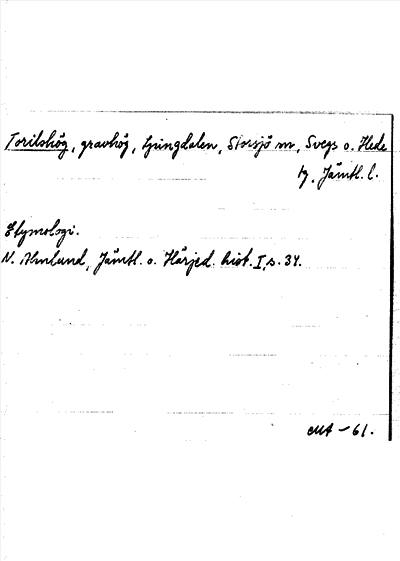 Torilshög, gravhög, Ljungdalen, Storsjö sn, Svegs o. Hede
tg, Jämtl. l.
Etymologi.
N. Ahnlund, Jämtl. o. Härjed. hist. I, s. 34.
MA -61.